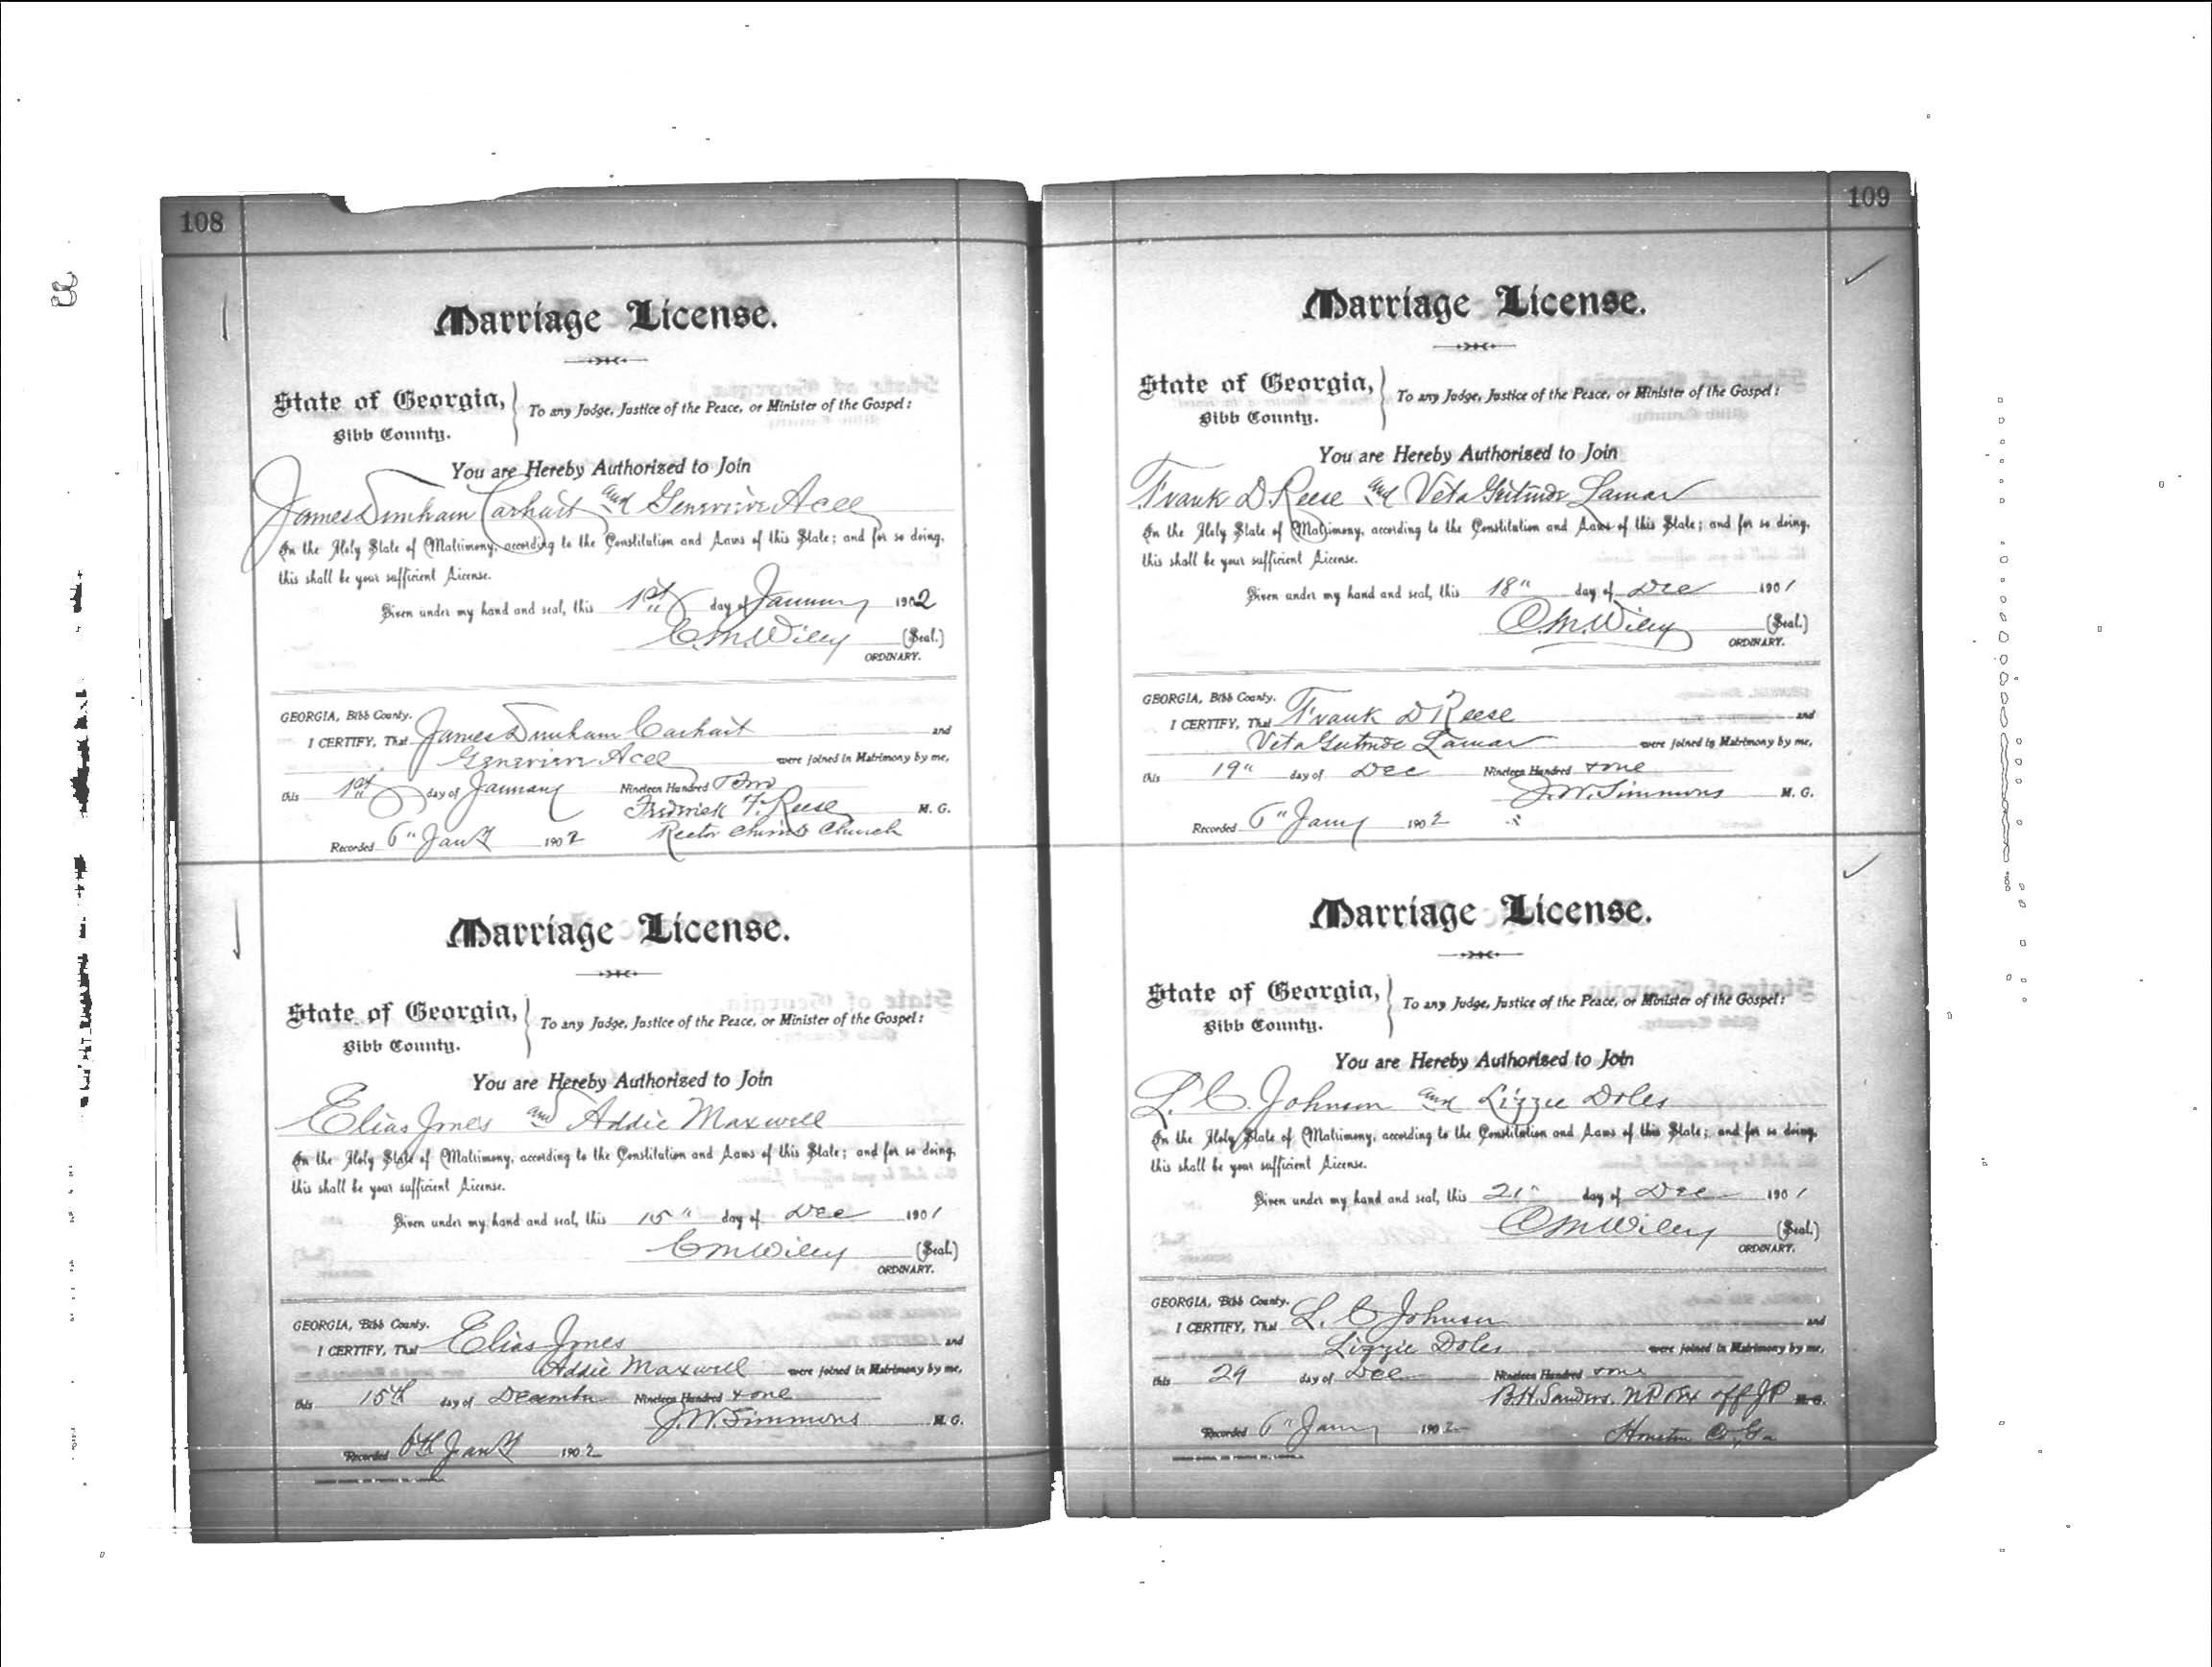 108
Marriage License.
State of Georgia,
Bibb County.
To any Judge, Justice of the Peace, or Minister of the Gospel:
You are Hereby Authorized to Join
James Dunham Carhart and Genevieve Acee
In the Holy State of Matrimony, according to the Constitution and Laws of this State; and for so doing,
this shall be your sufficient License.
Given under my hand and seal, this 1st day of January 1902
C.M. Wiley (Seal.)
ORDINARY.
GEORGIA, Bibb County.
I CERTIFY, That James Dunham Carhart and
Genevieve Acee were joined in Matrimony by me,
this 1st day of January Nineteen Hundred Two
Frederick F. Reese M. G.
Rector Christ Church
Recorded 6" Jany 1902
Marriage License.
State of Georgia,
Bibb County.
To any Judge, Justice of the Peace, or Minister of the Gospel:
You are Hereby Authorized to Join
Elias Jones and Addie Maxwell
In the Holy State of Matrimony, according to the Constitution and Laws of this State; and for so doing,
this shall be your sufficient License.
Given under my hand and seal, this 15" day of Dec 1901
C M Wiley (Seal.)
ORDINARY.
GEORGIA, Bibb County.
I CERTIFY, That Elias Jones and
Addie Maxwell were joined in Matrimony by me,
this 15th day of December Nineteen Hundred & one
J. W. Simmons M. G.
Recorded 6th Jany 1902
109
Marriage License.
State of Georgia,
Bibb County.
To any Judge, Justice of the Peace, or Minister of the Gospel:
You are Hereby Authorized to Join
Frank D Reese and Veta Gertrude Lamar
In the Holy State of Matrimony, according to the Constitution and Laws of this State; and for so doing,
this shall be your sufficient License.
Given under my hand and seal, this 18" day of Dec 1901
C.M. Wiley (Seal.)
ORDINARY.
GEORGIA, Bibb County.
I CERTIFY, That Frank D Reese and
Veta Gertrude Lamar were joined in Matrimony by me,
this 19" day of Dec Nineteen Hundred & one
J. W. Simmons M. G.
Recorded 6" Jany 1902
Marriage License.
State of Georgia,
Bibb County.
To any Judge, Justice of the Peace, or Minister of the Gospel:
You are Hereby Authorized to Join
L. C. Johnson and Lizzie Doles
In the Holy State of Matrimony, according to the Constitution and Laws of this State; and for so doing,
this shall be your sufficient License.
Given under my hand and seal, this 21" day of Dec 1901
C M Wiley (Seal.)
ORDINARY.
GEORGIA, Bibb County.
I CERTIFY, That L. C Johnson and
Lizzie Doles were joined in Matrimony by me,
this 29 day of Dec Nineteen Hundred & one
B.H. Sanders. NP & Ex off JP M. G.
Recorded 6" Jany 1902 Houston Co., Ga